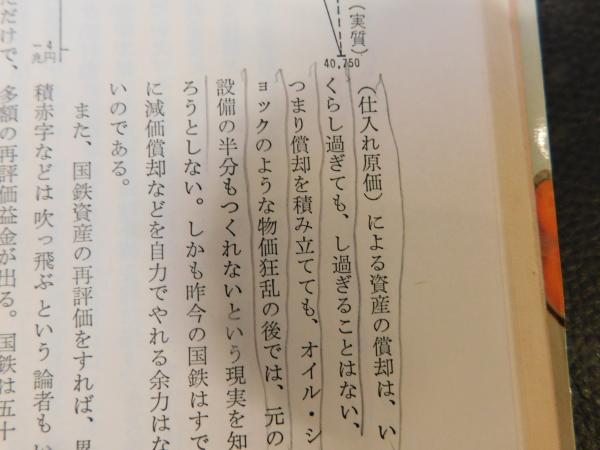 （実質）
40,750
－4
兆円
（仕入れ原価）による資産の償却は、い
くらし過ぎても、し過ぎることはない、
つまり償却を積み立てても、オイル・シ
ョックのような物価狂乱の後では、元の
設備の半分もつくれないという現実を知
ろうとしない。しかも昨今の国鉄はすで
に減価償却などを自力でやれる余力はな
いのである。
また、国鉄資産の再評価をすれば、
積赤字などは吹っ飛ぶという論者も
だけで、多額の再評価益金が出る。国鉄は五十